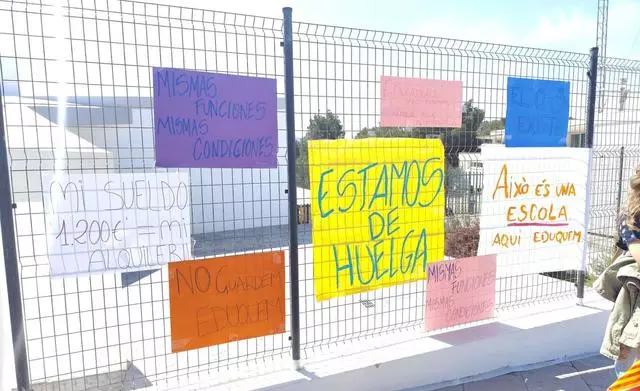 MISMAS
FUNCIONES
MISMAS
CONDICIONES
EL 0-3
EXISTE
MI SUELDO
1.200€ - MI
ALQUILER
ESTAMOS
DE
HUELGA
AIXÒ ÉS UNA
ESCOLA
AQUI EDUQUEM
NO GUARDEM
EDUQUEM
MISMAS
FUNCIONES
MISMAS
CONDICIONES